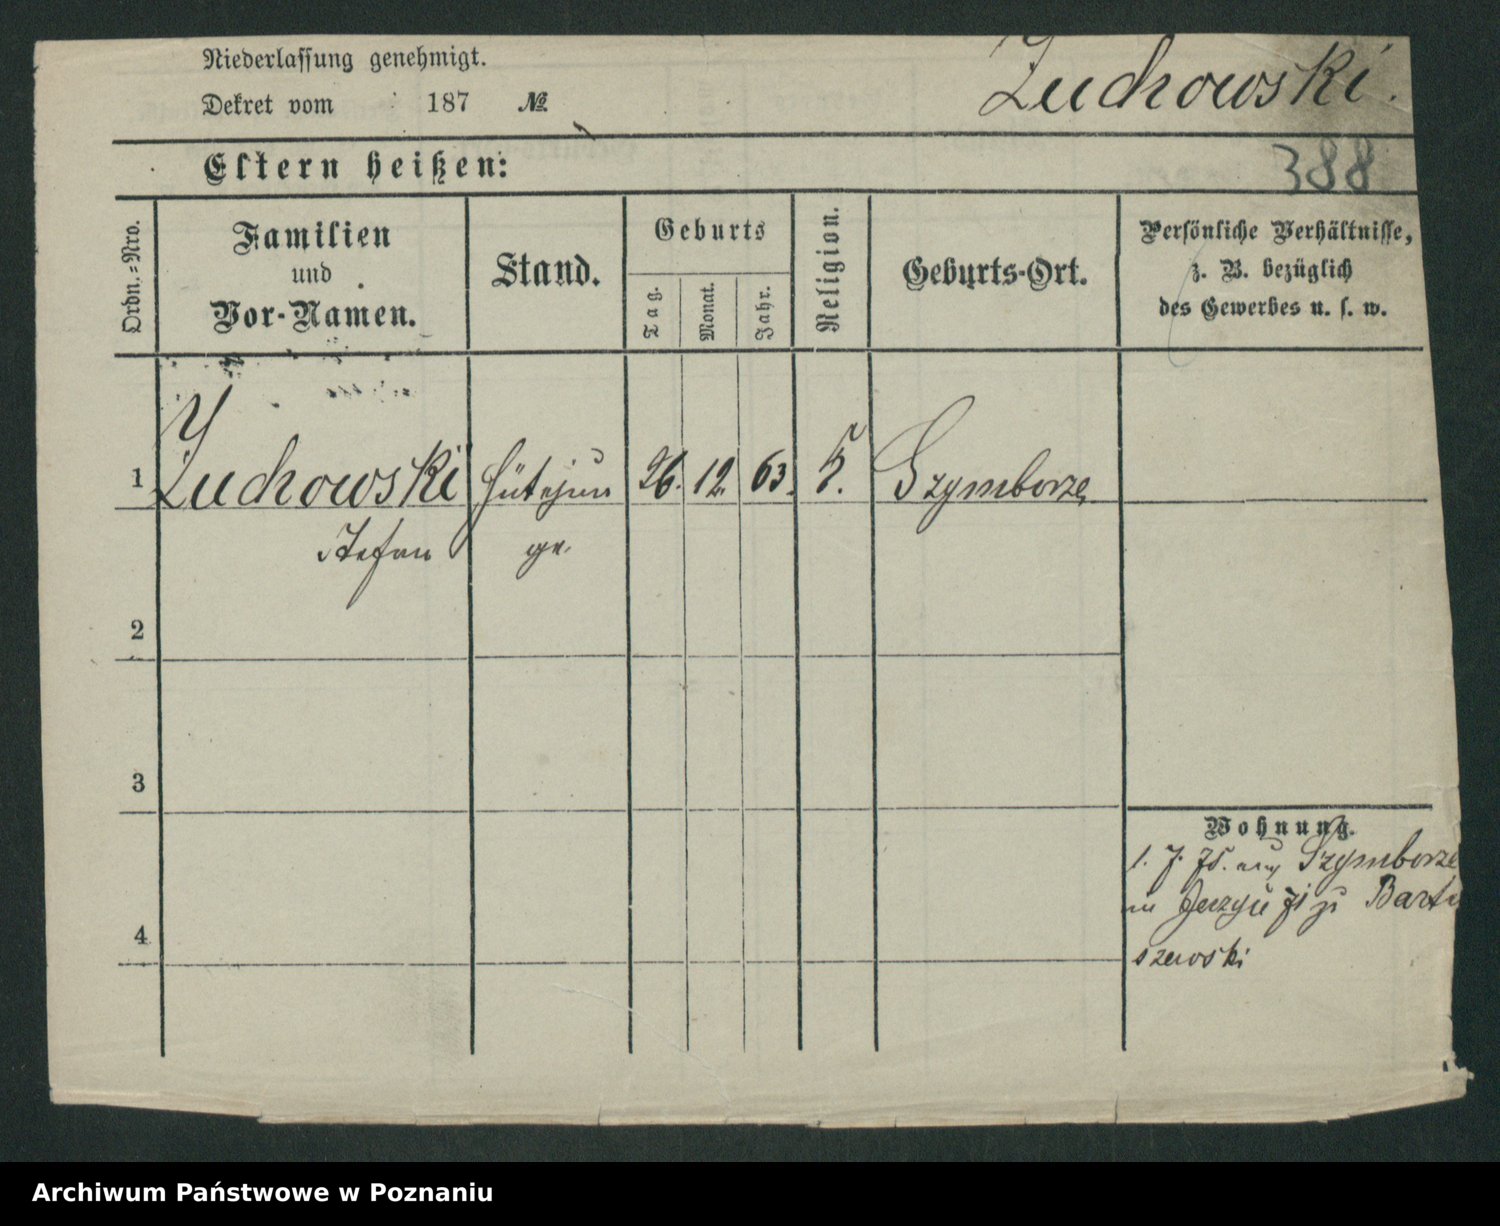 Niederlassung genehmigt.
Dekret vom 187 №
Zuchowski.
Eltern heißen:
388
Ordn.=Nro.
Familien
und
Vor-Namen.
Stand.
Geburts
Tag.
Monat.
Jahr.
Religion.
Geburts-Ort.
Persönliche Verhältnisse,
z. B. bezüglich
des Gewerbes u. s. w.
1 Zuchowski Hütejun 26. 12. 63. k. Szymborze
Stefan ge
2
3
Wohnung.
1. 7. 75. aus Szymborze
in Jerzyce 71 zu Bart
4
szewski
Archiwum Państwowe w Poznaniu